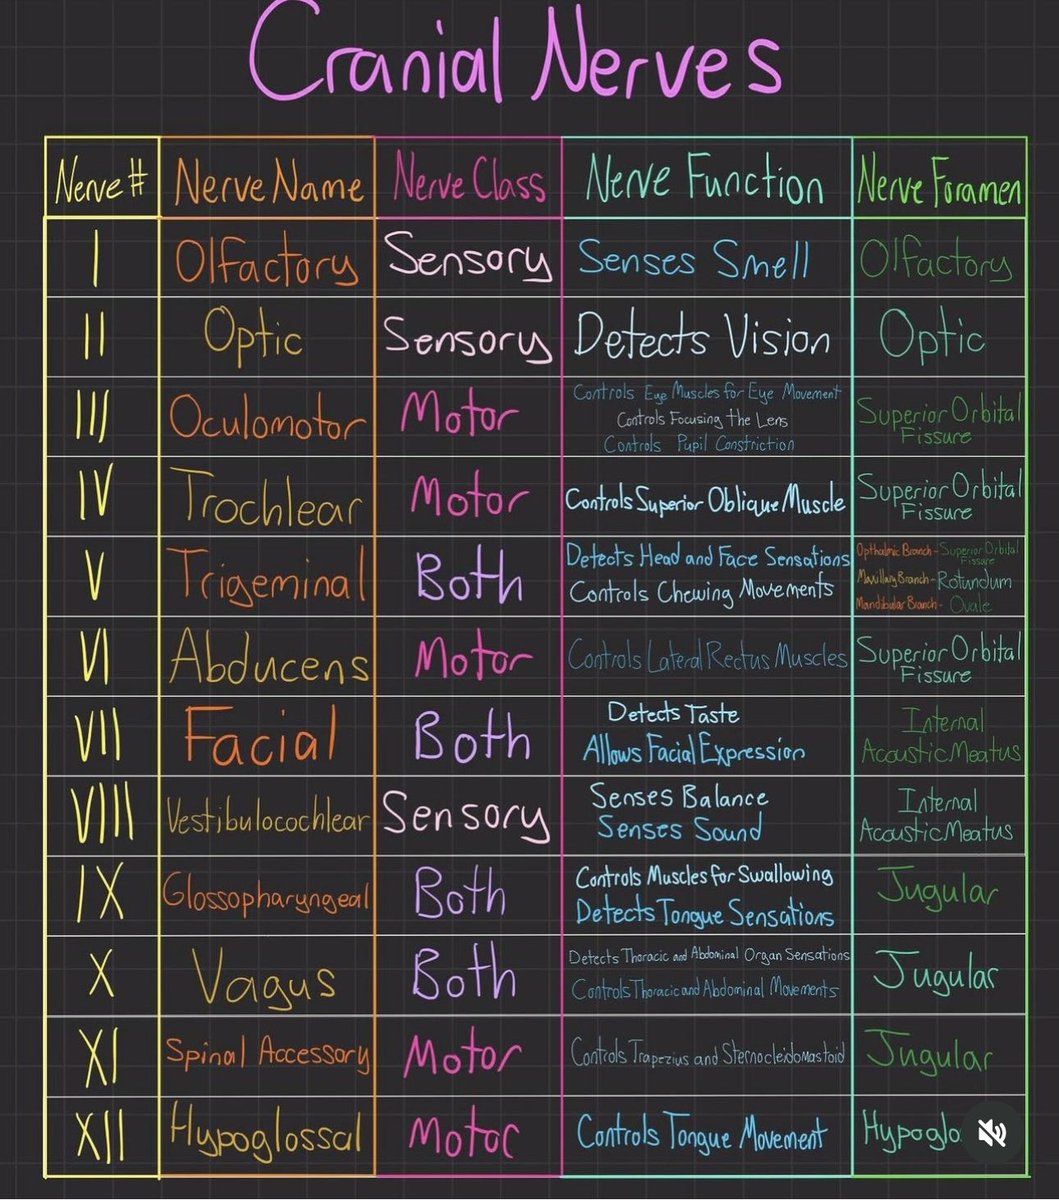 Cranial Nerves
Nerve # Nerve Name Nerve Class Nerve Function Nerve Foramen
I Olfactory Sensory Senses Smell Olfactory
II Optic Sensory Detects Vision Optic
III Oculomotor Motor Controls Eye Muscles for Eye Movement
Controls Focusing The Lens
Controls Pupil Constriction
Superior Orbital
Fissure
IV Trochlear Motor Controls Superior Oblique Muscle Superior Orbital
Fissure
V Trigeminal Both Detects Head and Face Sensations
Controls Chewing Movements
Opthalmic Branch - Superior Orbital
Fissure
Maxillary Branch - Rotundum
Mandibular Branch - Ovale
VI Abducens Motor Controls Lateral Rectus Muscles Superior Orbital
Fissure
VII Facial Both Detects Taste
Allows Facial Expression
Internal
Acoustic Meatus
VIII Vestibulocochlear Sensory Senses Balance
Senses Sound
Internal
Acoustic Meatus
IX Glossopharyngeal Both Controls Muscles for Swallowing
Detects Tongue Sensations
Jugular
X Vagus Both Detects Thoracic and Abdominal Organ Sensations
Controls Thoracic and Abdominal Movements
Jugular
XI Spinal Accessory Motor Controls Trapezius and Sternocleidomastoid Jugular
XII Hypoglossal Motor Controls Tongue Movement Hypoglo